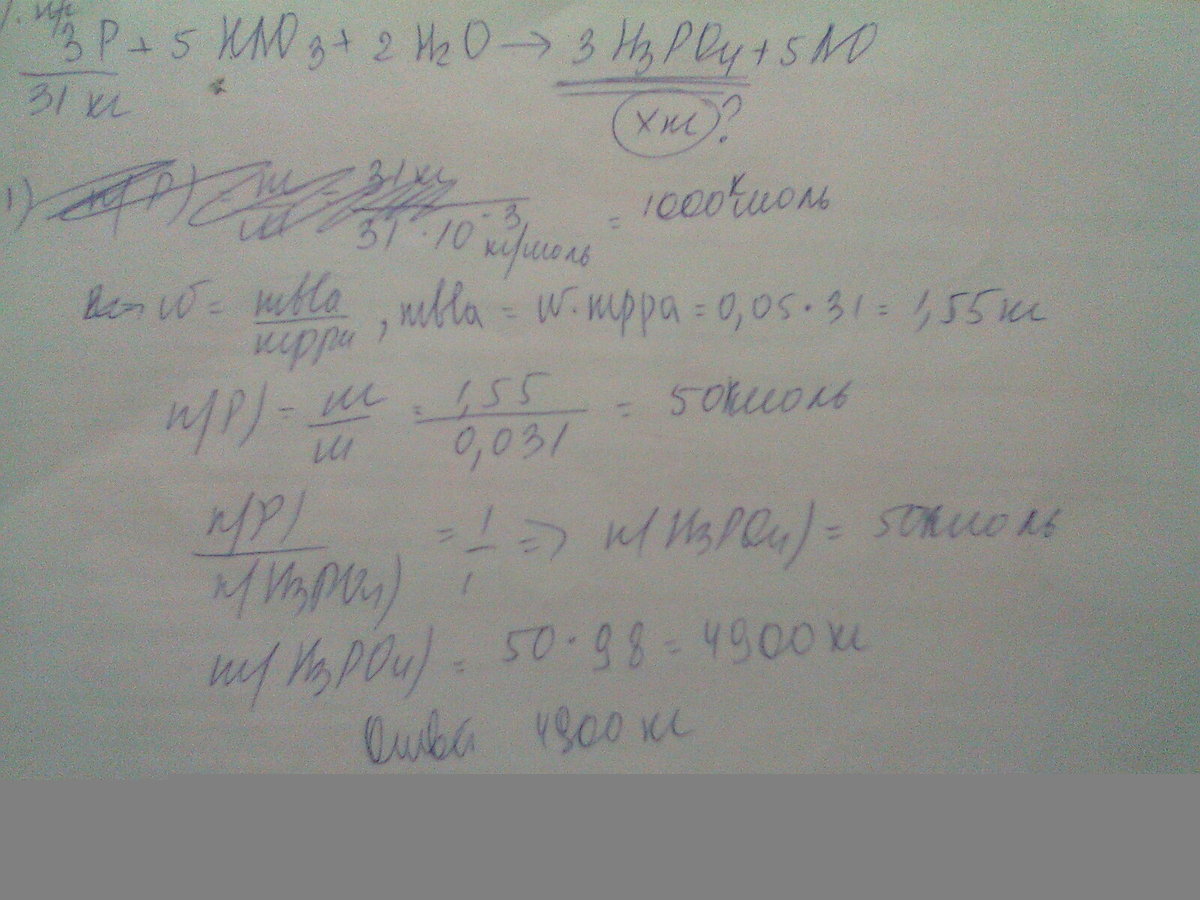 3P + 5 HNO3 + 2 H2O → 3 H3PO4 + 5NO
31 кг
x кг ?
1) n(P) = m/M = 31 кг / 31 · 10^-3 кг/моль = 1000 кмоль
W = mв-ва / mр-ра , mв-ва = W · mр-ра = 0,05 · 31 = 1,55 кг
n(P) = m/M = 1,55 / 0,031 = 50 кмоль
n(P) / n(H3PO4) = 1/1 => n(H3PO4) = 50 кмоль
m(H3PO4) = 50 · 98 = 4900 кг
4900 кг